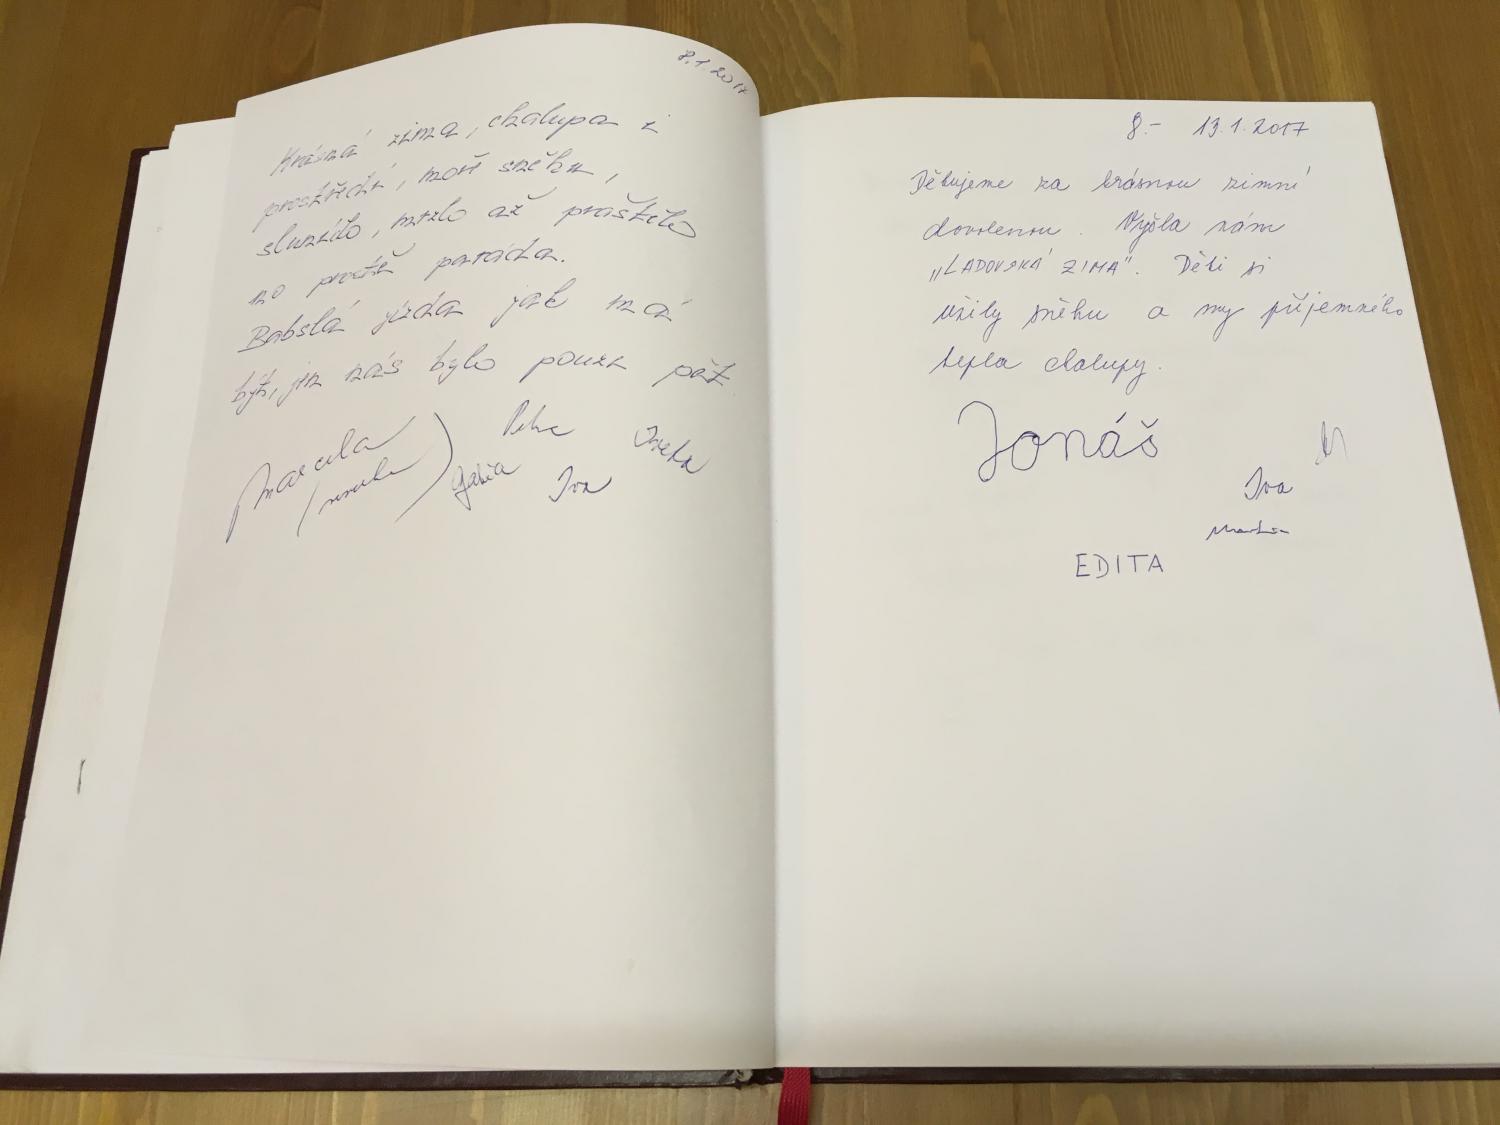 8.1.2017
Krásná zima, chalupa i
prostředí, moře sněhu,
slunko, mrzlo až praštělo
no prostě paráda.
Babská jízda jak má
být, jen nás bylo pouze pět.
Marcela
Petra
Iveta
Gábia
Iva
8.- 13.1.2017
Děkujeme za krásnou zimní
dovolenou. Vyšla nám
„LADOVSKÁ ZIMA". Děti si
užily sněhu a my příjemného
tepla chalupy.
Jonáš
Iva
Martin
EDITA